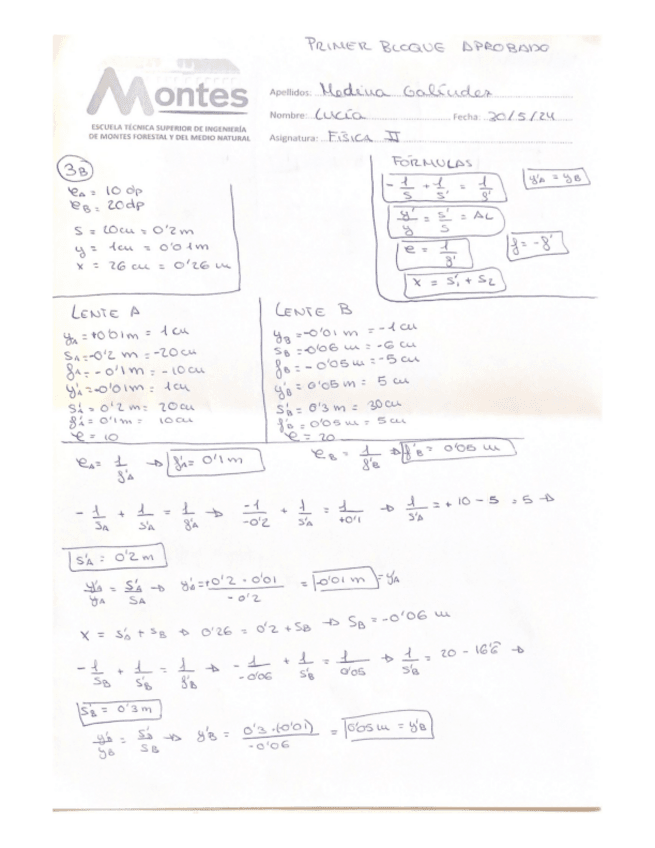 PRIMER BLOQUE APROBADO
Montes
ESCUELA TÉCNICA SUPERIOR DE INGENIERÍA
DE MONTES FORESTAL Y DEL MEDIO NATURAL
Apellidos: Medina Galíndez
Nombre: Lucía Fecha: 30/5/24
Asignatura: FÍSICA II
3B
φA = 10 dp
φB = 20 dp
s = 20cm = 0'2m
y = 1cm = 0'01m
x = 26 cm = 0'26 m
FÓRMULAS
-1/s + 1/s' = 1/f' y'A = yB
y'/y = s'/s = AL
φ = 1/f' f = -f'
x = s'1 + s2
LENTE A
yA = +0'01m = 1cm
sA = -0'2 m = -20cm
fA = -0'1m = -10cm
y'A = -0'01m = 1cm
s'A = 0'2 m = 20cm
f'A = 0'1m = 10cm
φ = 10
LENTE B
yB = -0'01 m = -1 cm
sB = -0'06 m = -6 cm
fB = -0'05 m = -5 cm
y'B = 0'05 m = 5 cm
s'B = 0'3 m = 30cm
f'B = 0'05 m = 5cm
φ = 20
φA = 1/f'A → f'A = 0'1 m φB = 1/f'B → f'B = 0'05 m
-1/sA + 1/s'A = 1/f'A → -1/-0'2 + 1/s'A = 1/+0'1 → 1/s'A = +10 - 5 = 5 →
s'A = 0'2 m
y'A/yA = s'A/sA → y'A = +0'2 · 0'01/-0'2 = -0'01 m = y'A
x = s'A + sB → 0'26 = 0'2 + sB → sB = -0'06 m
-1/sB + 1/s'B = 1/f'B → -1/-0'06 + 1/s'B = 1/0'05 → 1/s'B = 20 - 16'6 →
s'B = 0'3 m
y'B/yB = s'B/sB → y'B = 0'3 · (-0'01)/-0'06 = 0'05 m = y'B